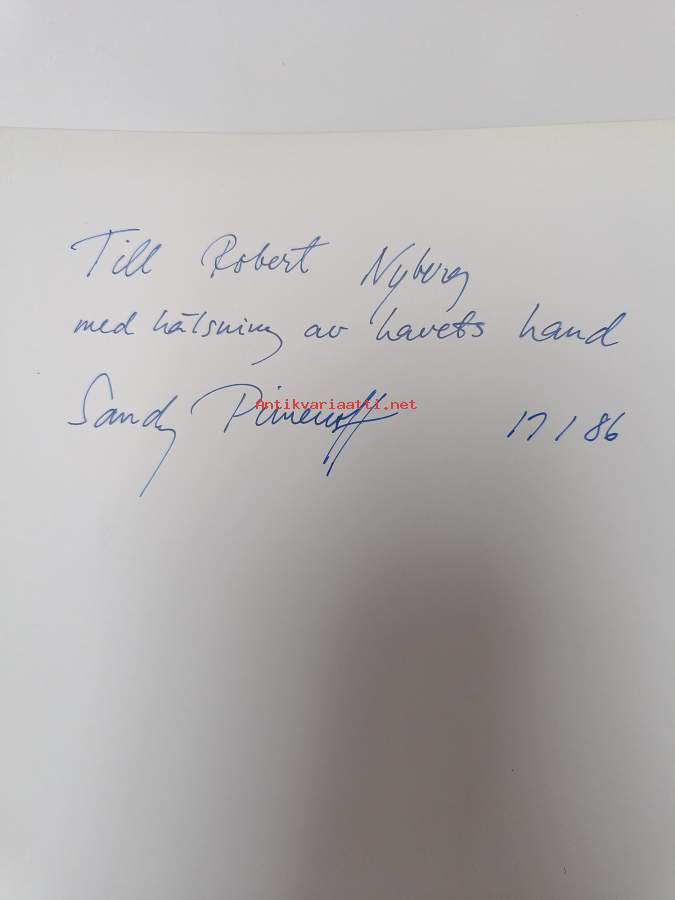 Till Robert Nyberg
med hälsning av havets hand
Sandy Pimenoff 17/86
Antikvariaatti.net